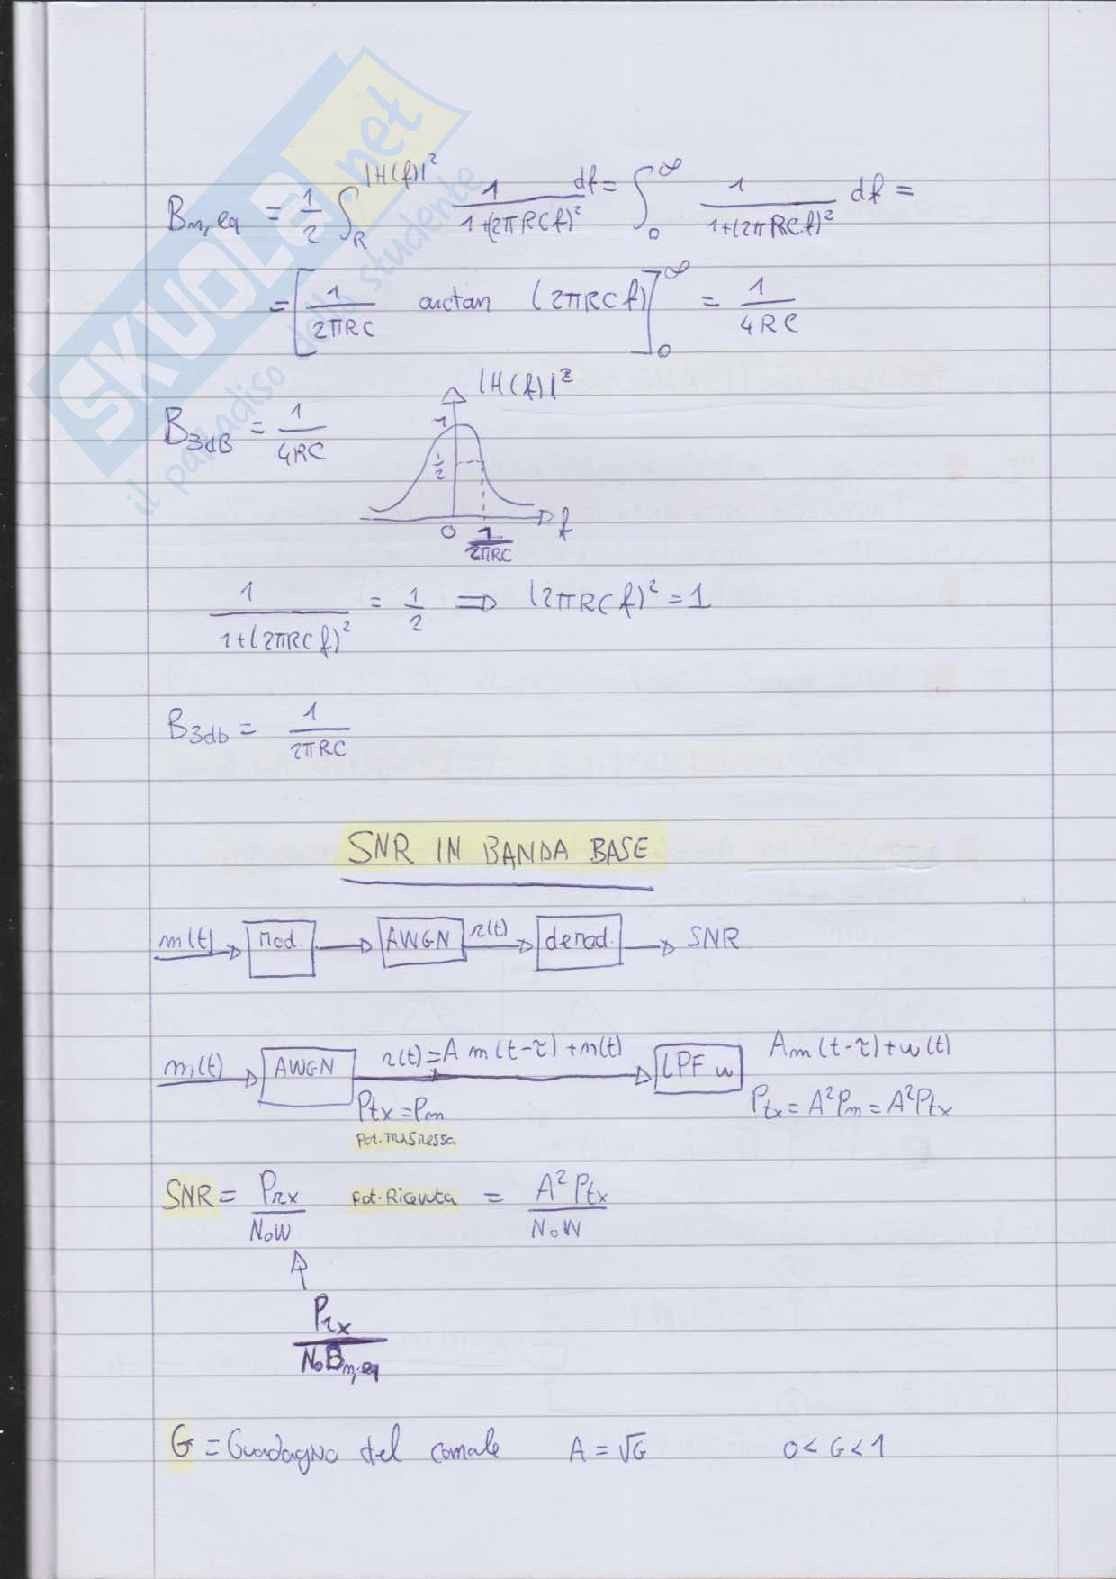 SKUOLA.net
il paradiso dello studente
|H(f)|²
B_{n,eq} = 1/2 ∫_R 1/(1+(2πRCf)²) df = ∫_0^∞ 1/(1+(2πRCf)²) df =
= [1/(2πRC) arctan (2πRCf)]_0^∞ = 1/(4RC)
B_{3dB} = 1/(4RC)
|H(f)|²
1
1/2
0 1/(2πRC) f
1/(1+(2πRCf)²) = 1/2 ⇒ (2πRCf)² = 1
B_{3db} = 1/(2πRC)
SNR IN BANDA BASE
m(t) → Mod. → AWGN r(t) → demod. → SNR
m(t) → AWGN r(t) = A m(t-τ) + n(t) → LPF w A m(t-τ) + w(t)
Ptx = Pm Ptx = A²Pm = A²Ptx
Pot. TRASMESSA
SNR = Prx/(N₀W) Pot. Ricevuta = A² Ptx/(N₀W)
↑
Prx/(N₀B_{n,eq})
G = Guadagno del canale A = √G 0 < G < 1